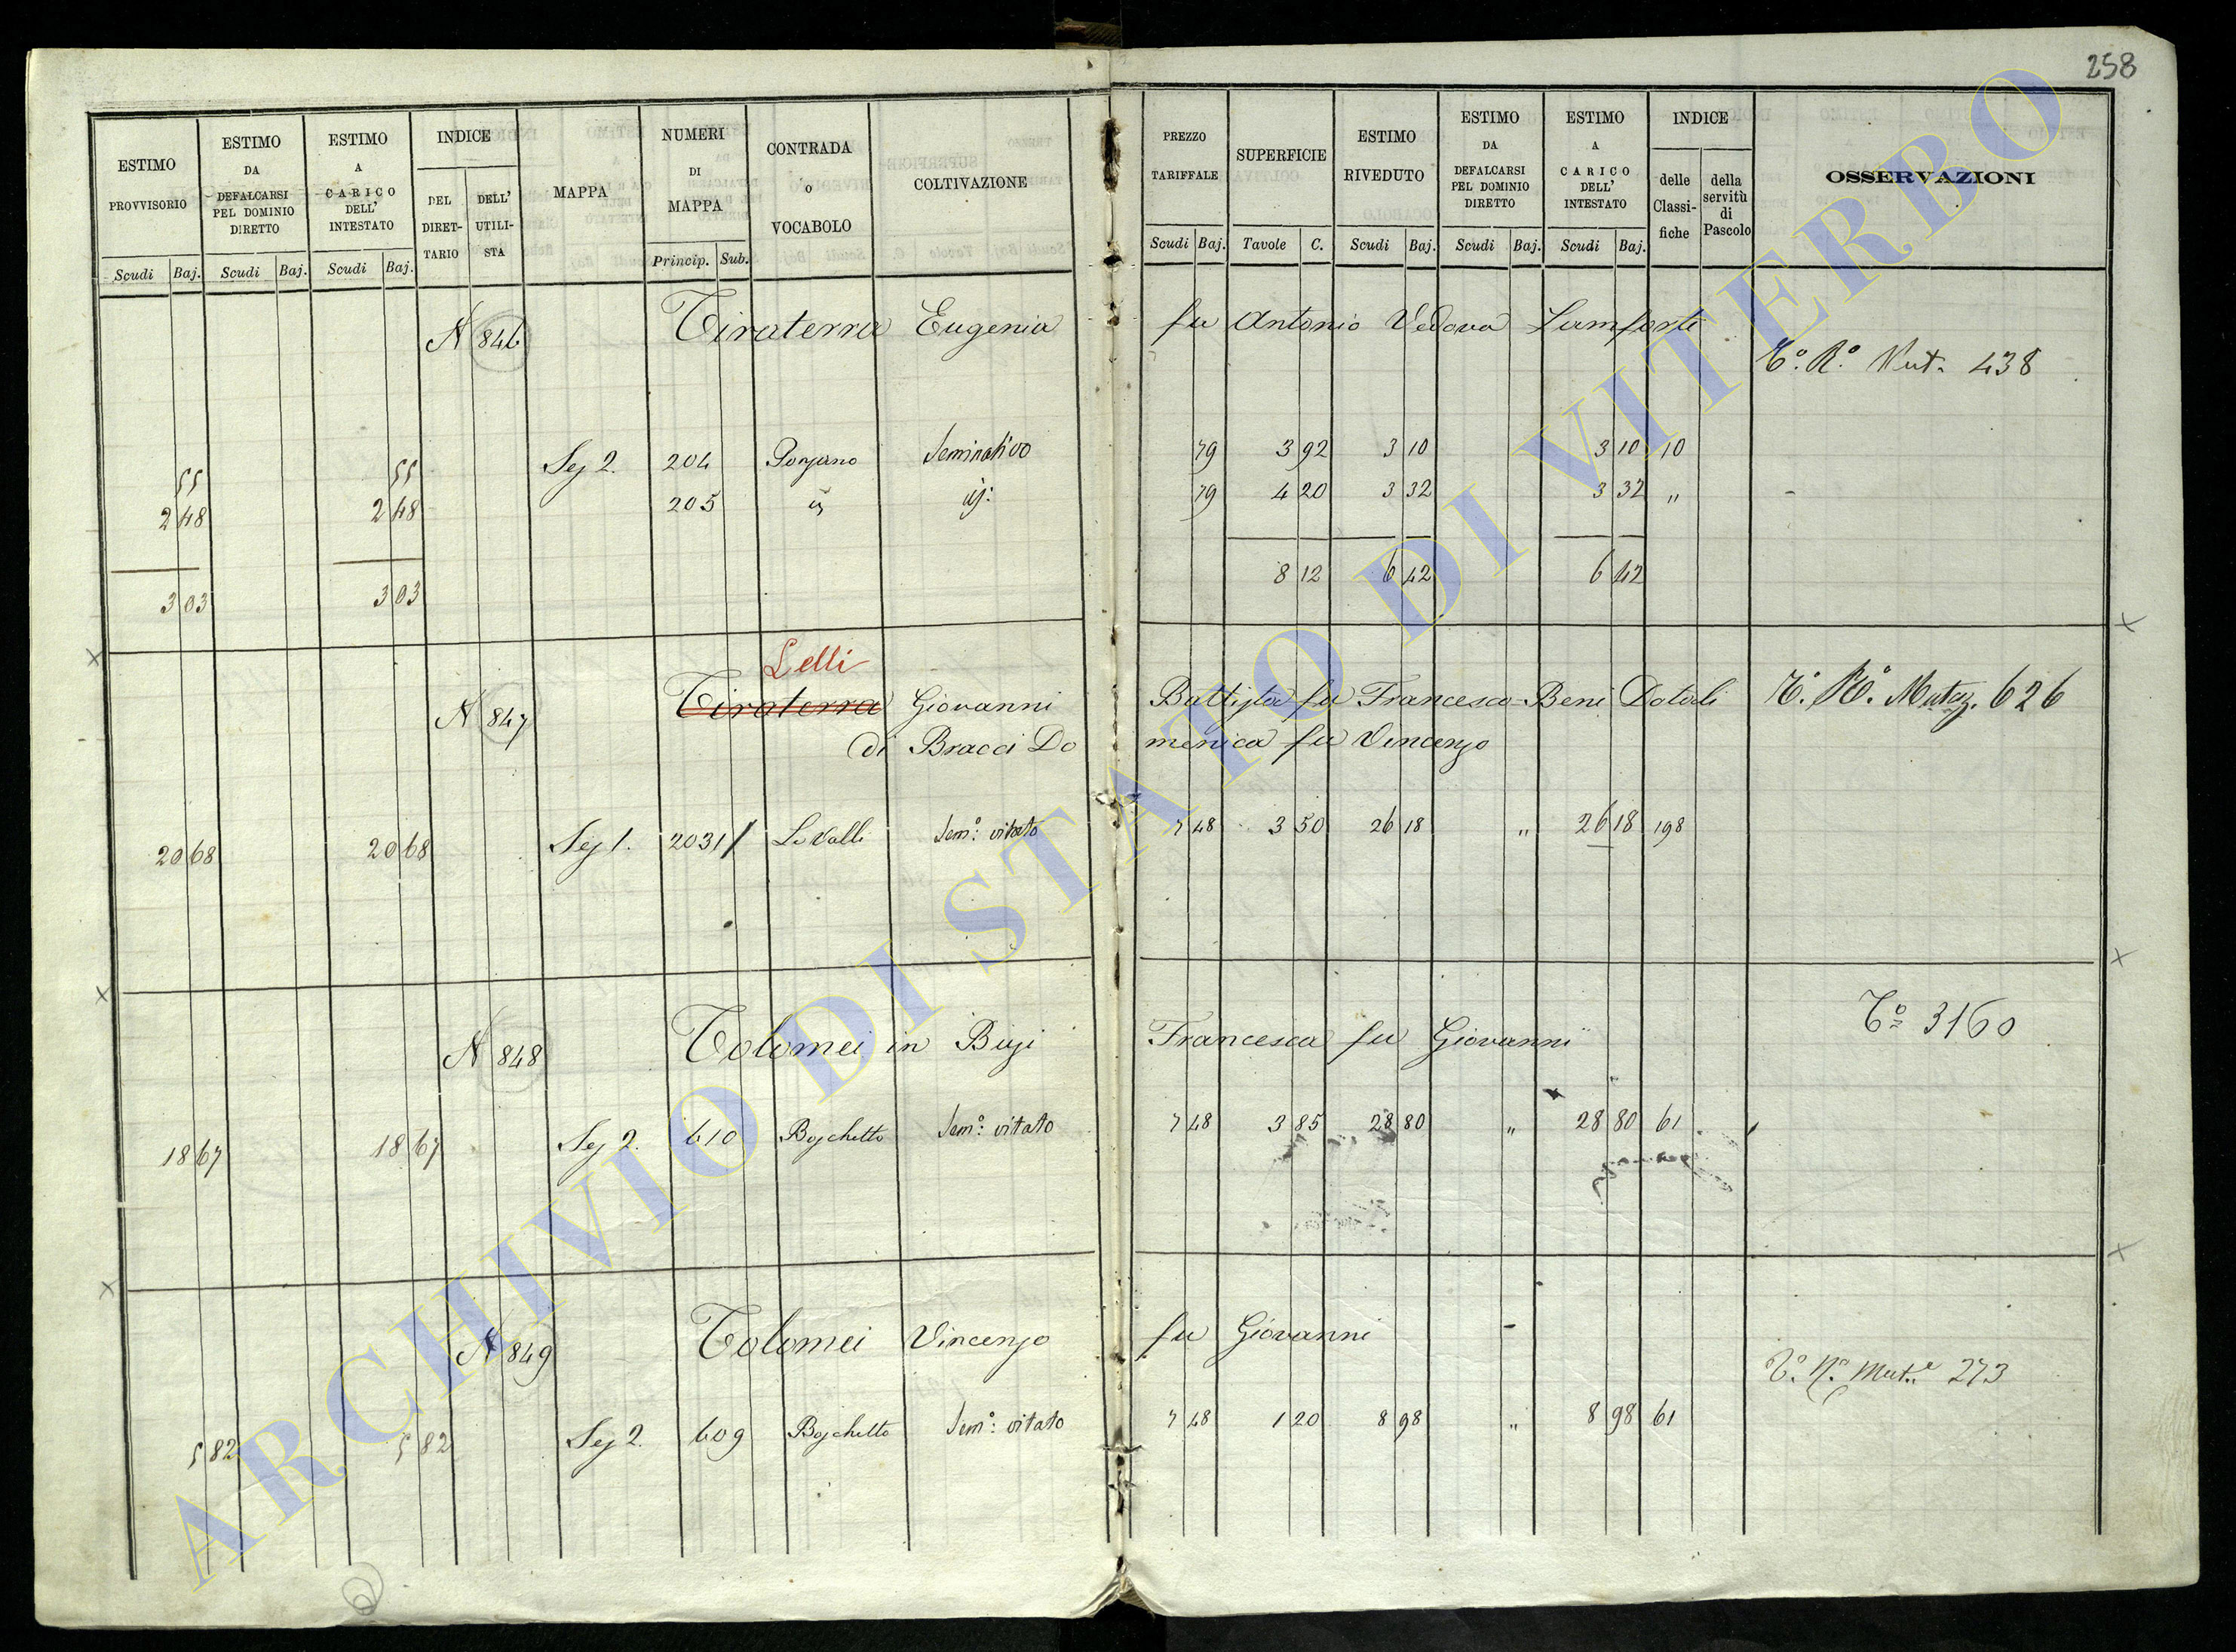 258
ESTIMO PROVVISORIO
ESTIMO DA DEFALCARSI PEL DOMINIO DIRETTO
ESTIMO A CARICO DELL' INTESTATO
INDICE
DEL DIRET-TARIO
DELL' UTILI-STA
MAPPA
NUMERI DI MAPPA
CONTRADA O VOCABOLO
COLTIVAZIONE
Scudi Baj. Scudi Baj. Scudi Baj. Princip. Sub.
PREZZO TARIFFALE
SUPERFICIE
ESTIMO RIVEDUTO
ESTIMO DA DEFALCARSI PEL DOMINIO DIRETTO
ESTIMO A CARICO DELL' INTESTATO
INDICE
delle Classi-fiche
della servitù di Pascolo
OSSERVAZIONI
Scudi Baj. Tavole C. Scudi Baj. Scudi Baj. Scudi Baj.
N 846 Tiraterra Eugenia fu Antonio Vedova
To. Ro. 438
55 55 Sez 2. 204 Seminativo 79 3 92 3 10 3 10 10
2 48 2 48 205 id: 79 4 20 3 32 3 32 "
3 03 3 03 8 12 6 42 6 42
Lelli
N 847 Tiraterra Giovanni Battista fu Francesco Beni Dotali To. Ro. Mutaz. 626
di Bracci Domenica fu Vincenzo
20 68 20 68 Sez 1. 2031 Le Valli Sem.o: vitato 7 48 3 50 26 18 " 26 18 198
To 3160
N 848 Tolomei in Bizi Francesca fu Giovanni
18 67 18 67 Sez 2. 610 Boschetto Sem.o: vitato 7 48 3 85 28 80 " 28 80 61
N 849 Tolomei Vincenzo fu Giovanni
To. Ro. Mut.e 273
5 82 5 82 Sez 2. 609 Boschetto Sem.o: vitato 7 48 1 20 8 98 " 8 98 61
ARCHIVIO DI STATO DI VITERBO